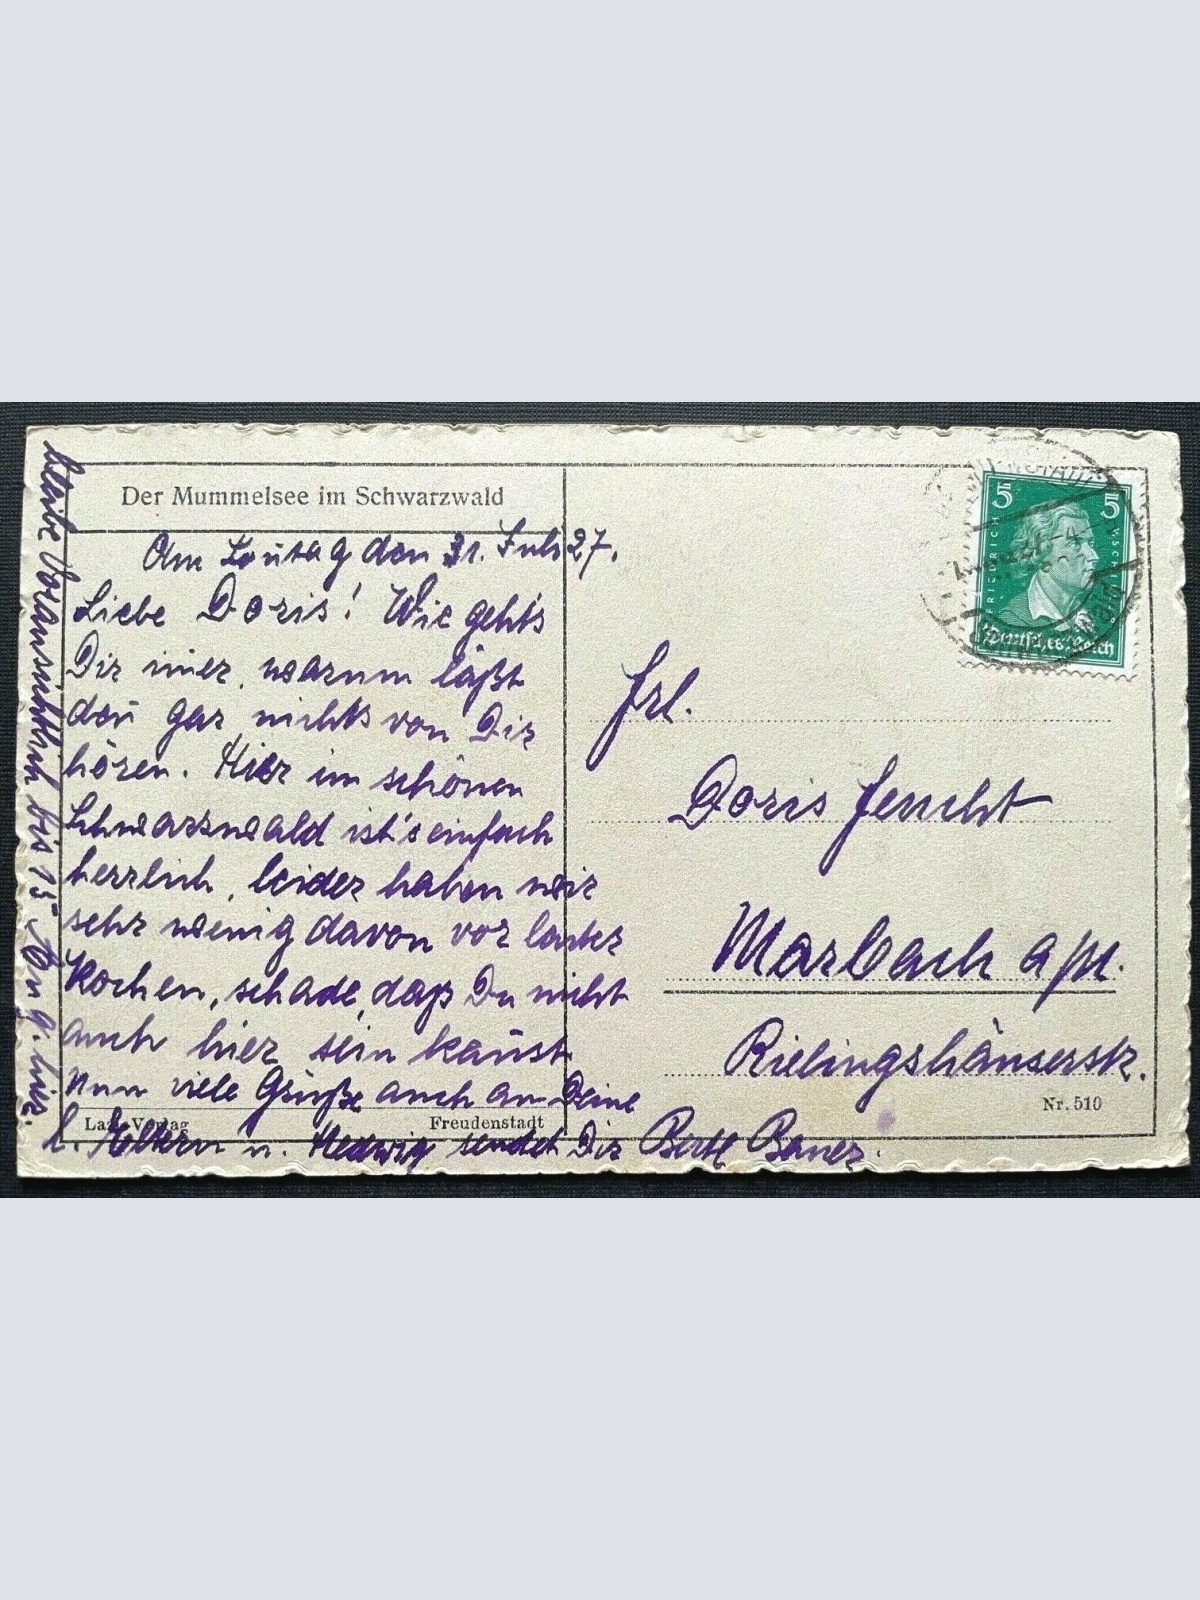 Der Mummelsee im Schwarzwald
Am Sontag den 31. Juli 27.
Liebe Doris! Wie geht's
Dir imer, warum läßt
den gar nichts von Dir
hören. Hier im schönen
Schwarzwald ist's einfach
herrlich, leider haben wir
sehr wenig davon vor lauter
Kochen, schade, daß Du nicht
auch hier sein kannst
Nun viele Grüße auch an Deine
l. Eltern u. Hedwig sendet Dir Bertl Bauer.
bleibe voraussichtlich bis 15. Aug. hier.
Verlag
Freudenstadt
5 5
FRIEDRICH v. SCHILLER
Deutsches Reich
Frl.
Doris Feucht
Marbach a/N.
Rielingshäuserstr.
Nr. 510